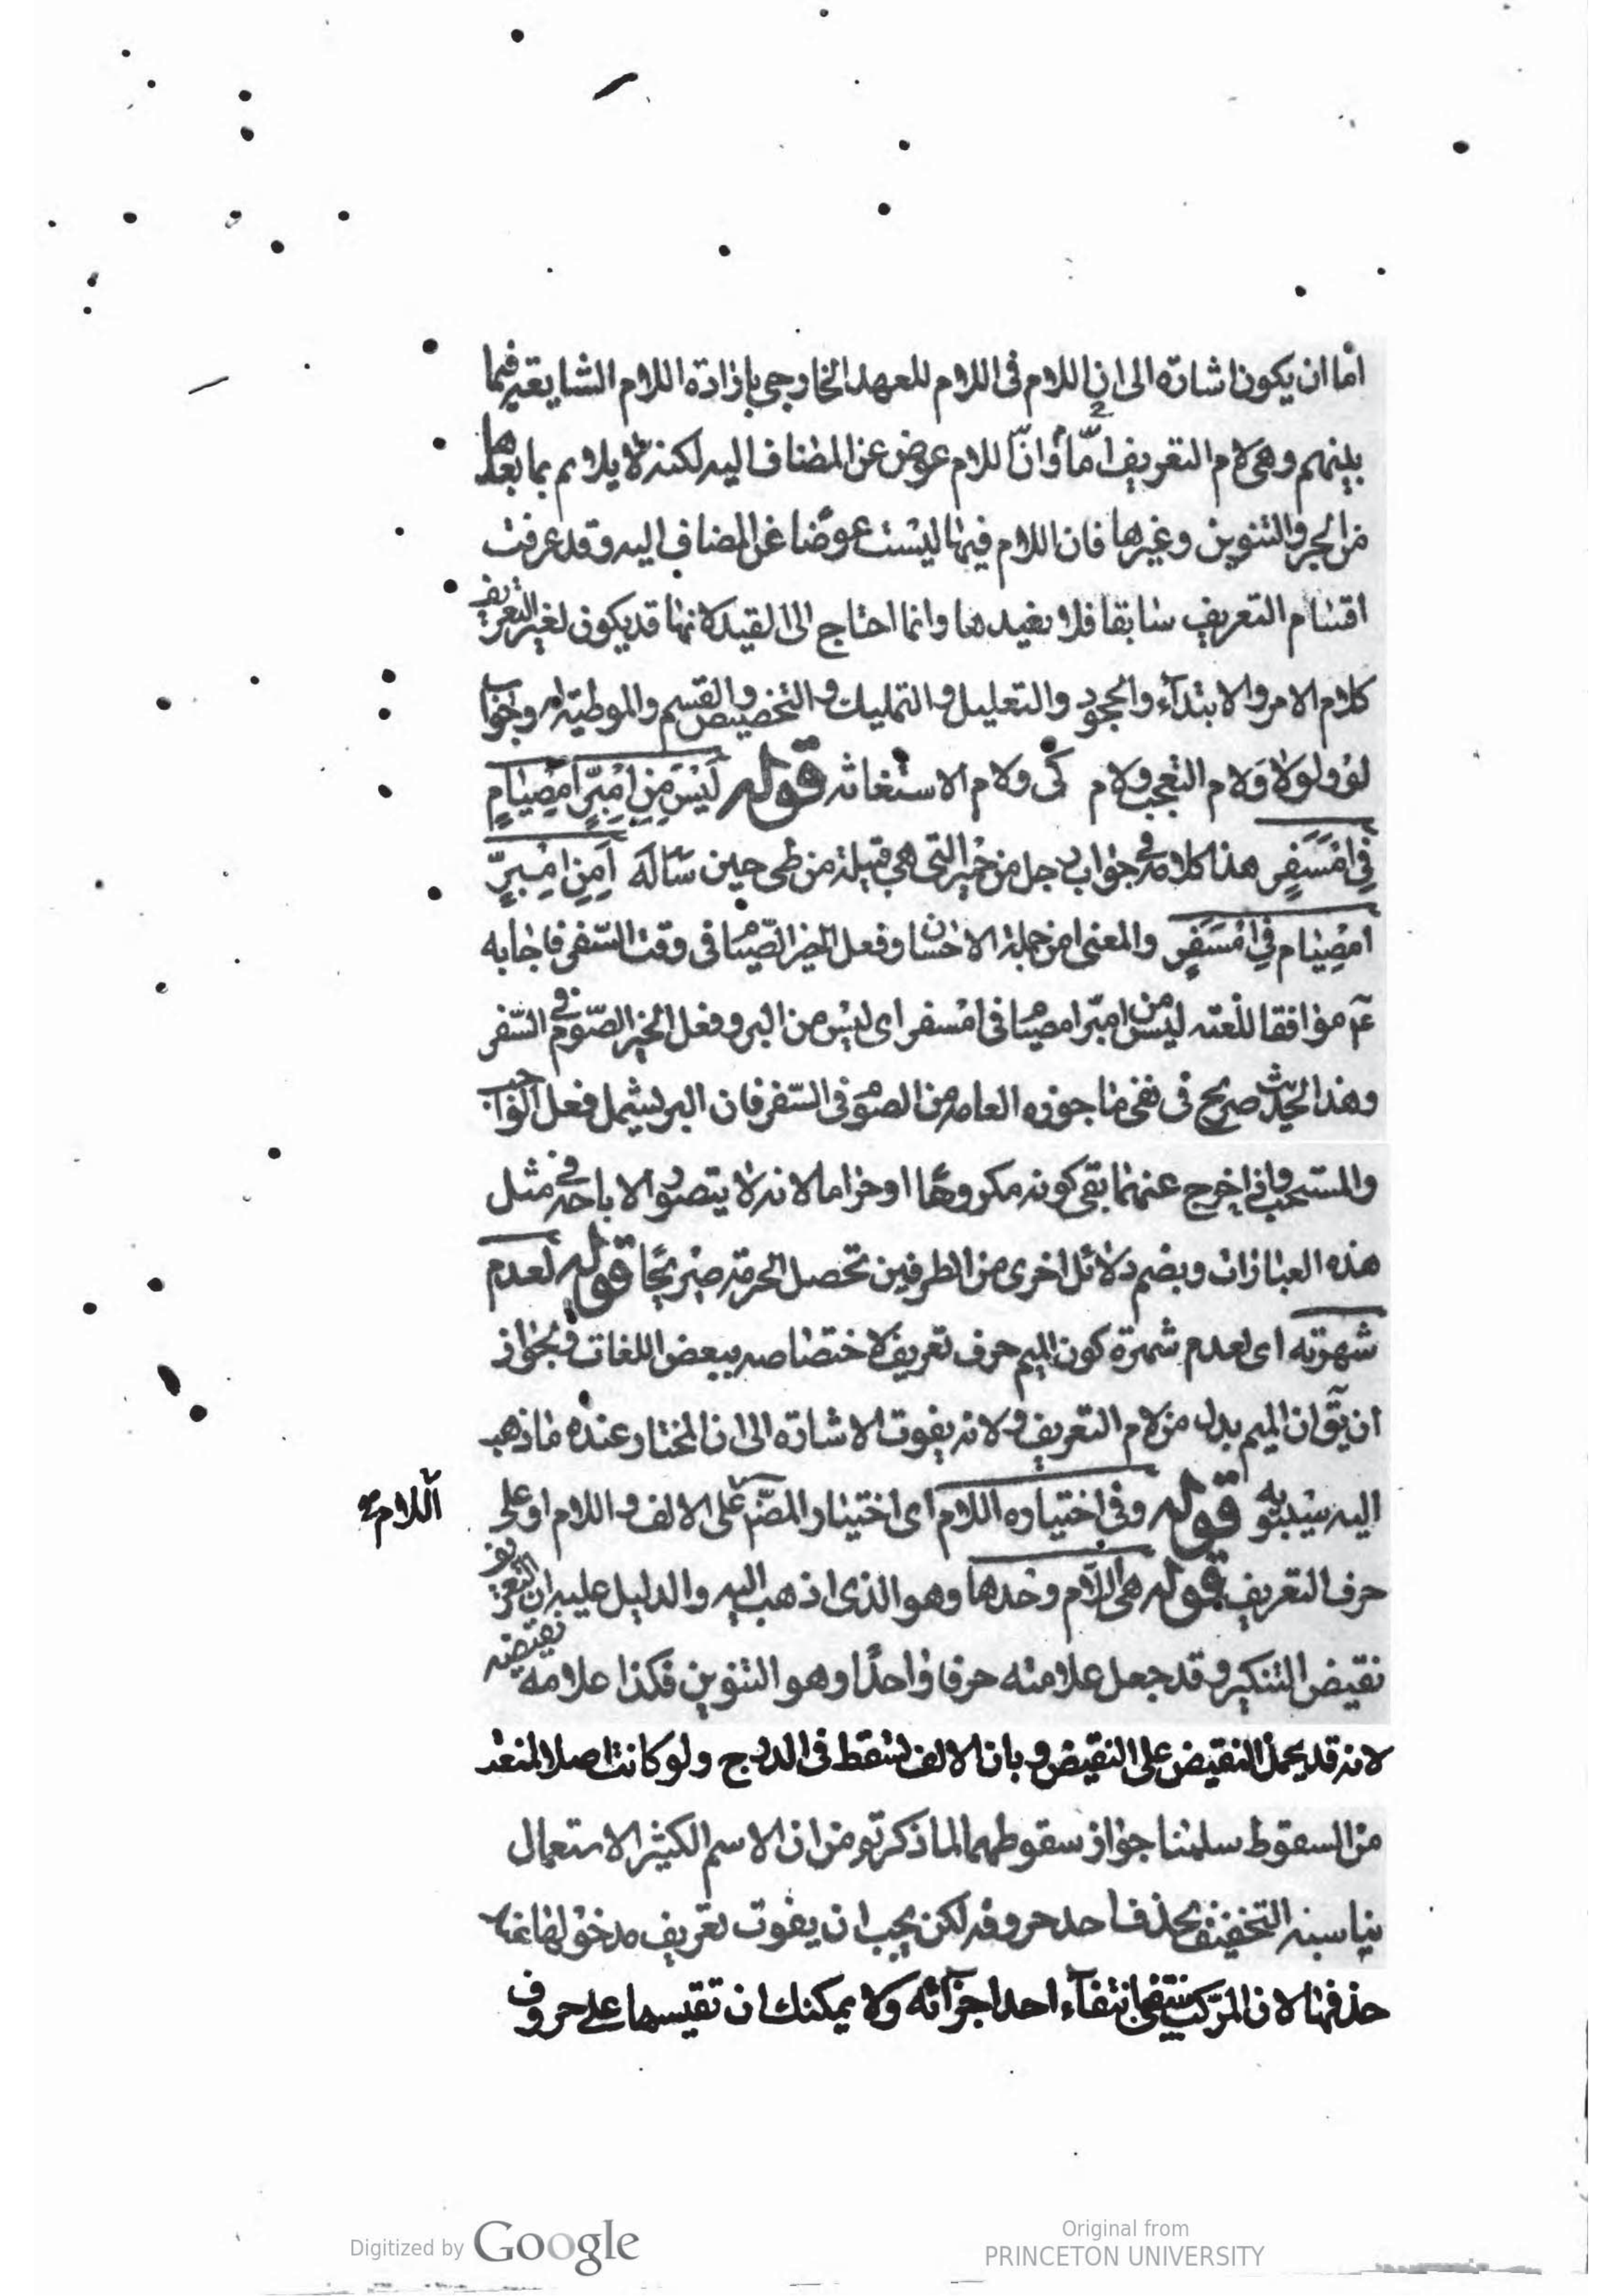 اما ان يكون اشارة الى ان اللام فى اللام للعهد الخارجى بارادة اللام الشايعة فيما
بينهم وهى لام التعريف اما وان اللام عوض عن المضاف اليه لكنه لا يلايم بما بعدها
من الجر والتنوين وغيرها فان اللام فيها ليست عوضا عن المضاف اليه وقد عرفت
اقسام التعريف سابقا فلا نعيدها وانما احتاج الى القيد لانها قد يكون لغير التعريف
كلام الامر والابتداء والجحود والتعليل والتمليك والتخصيص والقسم والموطئة له وجواب
لو ولولا ولام التعجب ولام كى ولام الاستغاثه قوله لَيْسَ مِنِ امْبِرِّ امْصِيامٍ
فِى امْسَفَرِ هذا كلامه فى جواب رجل من حمير التى هى قبيلة من طى حين سأله اَمِنِ امْبِرِّ
امْصِيام فِى امْسَفَرِ والمعنى امن جملة الاحسان وفعل الخير الصيام فى وقت السفر فاجابه
ع موافقا للغته ليس من امبر امصيام فى امسفر اى ليس من البر وفعل الخير الصوم فى السفر
وهذا الحديث صريح فى نفى ما جوزه العامه من الصوم فى السفر فان البر يشمل فعل الواجب
والمستحب فاذا خرج عنهما بقى كونه مكروها او حراما لانه لا يتصور الاباحة فى مثل
هذه العبارات وبضم دلائل اخرى من الطرفين تحصل الحرمة صريحا قوله لعدم
شهرته اى لعدم شهرة كون الميم حرف تعريف لاختصاصه ببعض اللغات ولجواز
ان يق ان الميم بدل من لام التعريف ولانه يفوت الاشارة الى ان المختار عنده ما ذهب
اليه سيبويه قوله وفى اختياره اللام اى اختيار المص على الالف واللام او على
اللام
حرف التعريف قوله هى اللام وحدها وهو الذى اذهب اليه والدليل عليه ان التعريف
نقيض التنكير وقد جعل علامته حرفا واحدا وهو التنوين فكذا علامة نقيضه
لانه قد يحمل النقيض على النقيض وبان الالف تسقط فى الدرج ولو كانت اصلا لمنعت
من السقوط سلمنا جواز سقوطهما لما ذكرتم من ان الاسم الكثير الاستعمال
يناسبه التخفيف بحذف احد حروفه لكن يجب ان يفوت تعريف مدخولها
حذفها لان المركب ينتفى بانتفاء احد اجزائه ولا يمكنك ان تقيسها على حروف
Digitized by Google
Original from
PRINCETON UNIVERSITY